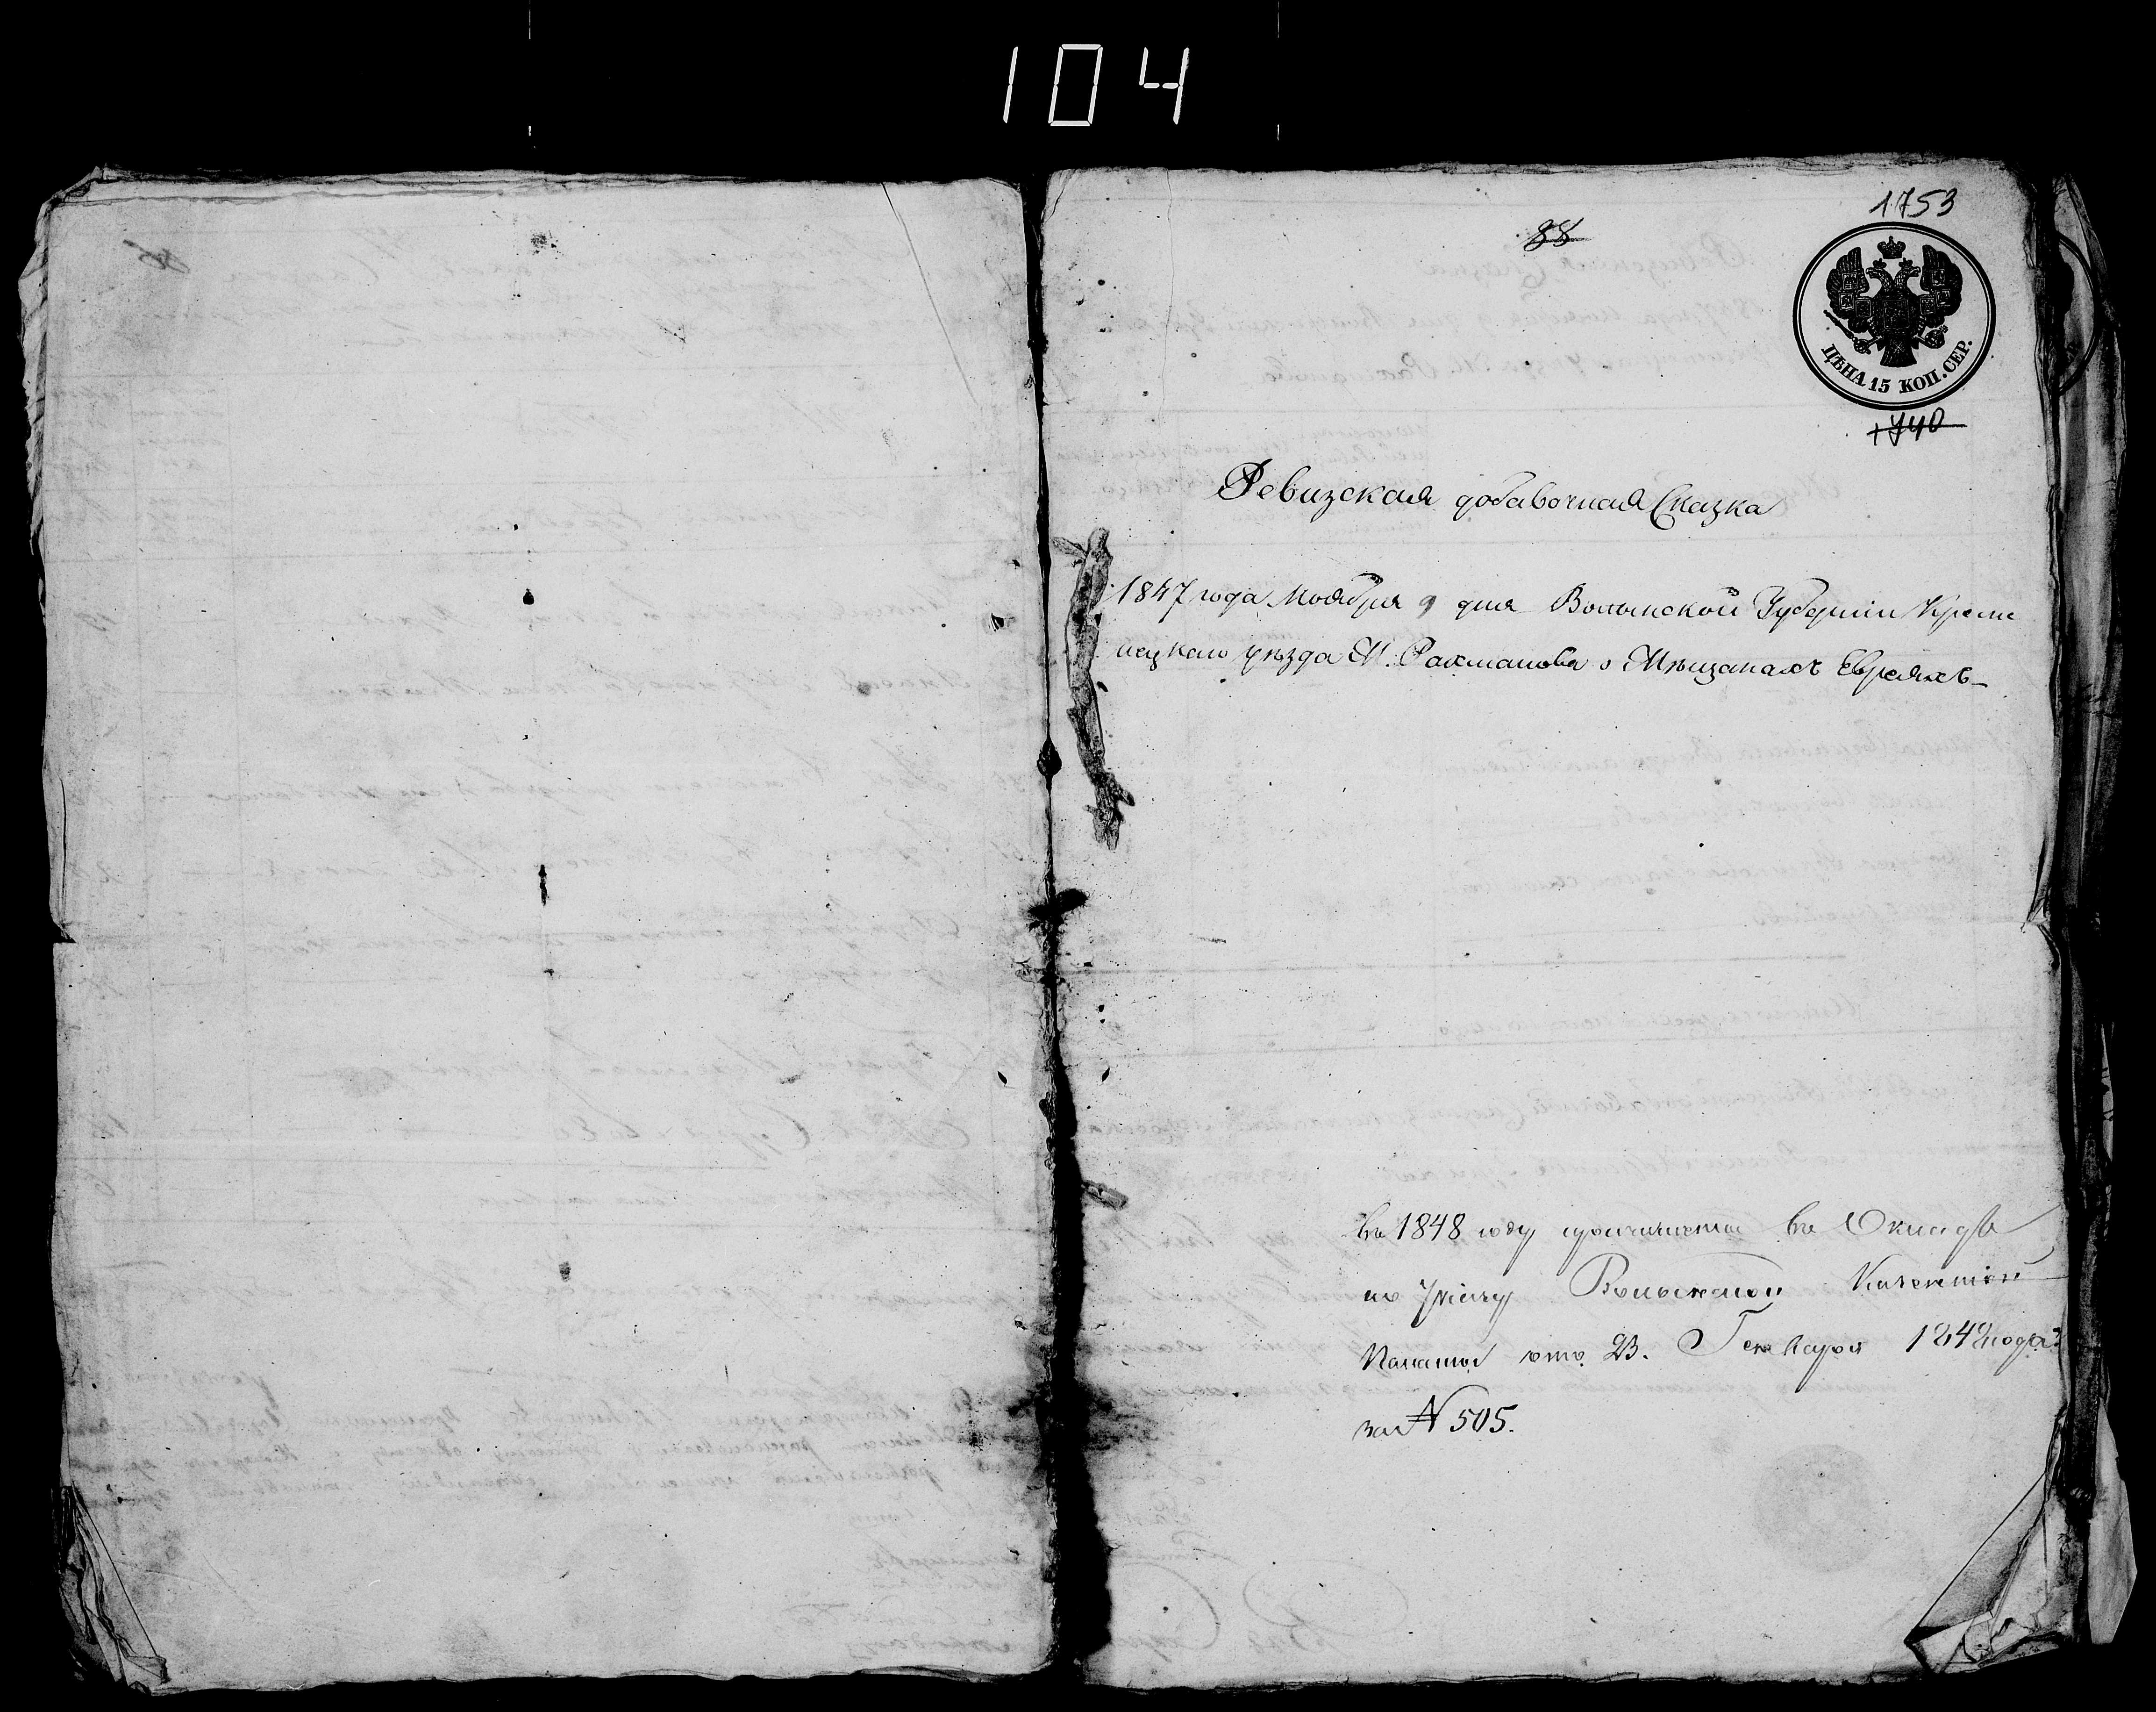 104
1753
88
ЦѢНА 15 КОП. СЕР.
1740
Ревизская добавочная Сказка
1847 года Ноября 9 дня Волынской Губерніи Креме
нецкаго уѣзда М. Рахманова о Мѣщанахъ Евреяхъ
въ 1848 году причислены въ Окладъ
по Указу Волынской Казенной
Палаты отъ 23. Генваря 1848 года
за № 505.